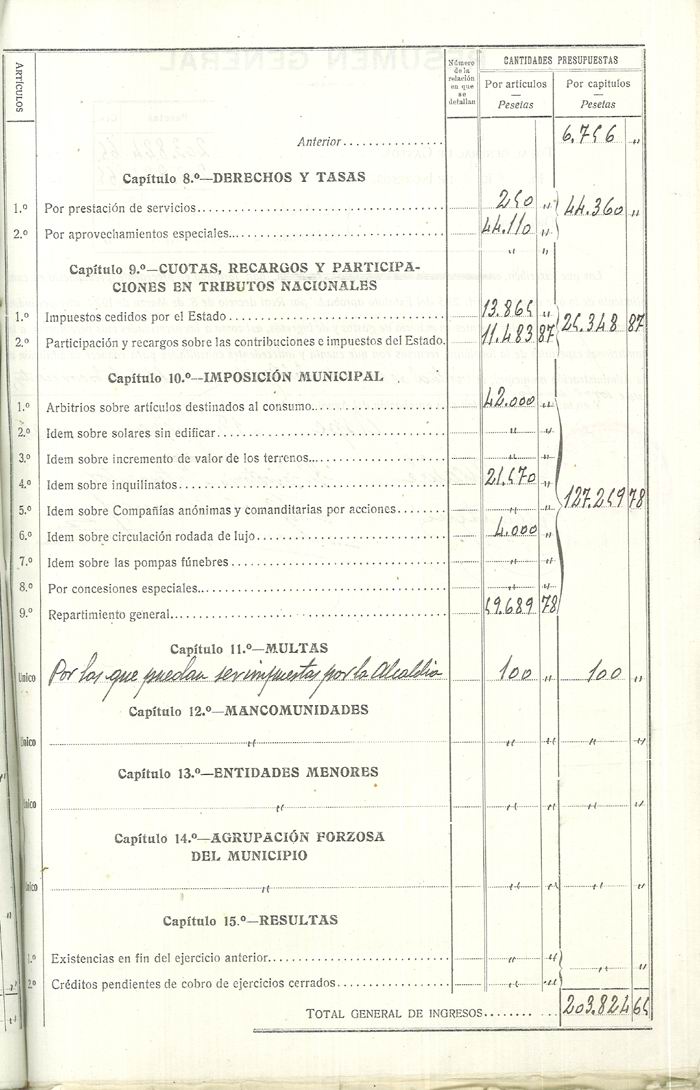 ARTÍCULOS
Número de la relación en que se detallan
CANTIDADES PRESUPUESTAS
Por artículos — Pesetas
Por capítulos — Pesetas
Anterior................ 6.756 „
Capítulo 8.º—DERECHOS Y TASAS
1.º Por prestación de servicios................ 250 „
44.360 „
2.º Por aprovechamientos especiales................ 44.110 „
„ „
Capítulo 9.º—CUOTAS, RECARGOS Y PARTICIPA-
CIONES EN TRIBUTOS NACIONALES
1.º Impuestos cedidos por el Estado................ 13.865 „
25.348 87
2.º Participación y recargos sobre las contribuciones e impuestos del Estado. 11.483 87
Capítulo 10.º—IMPOSICIÓN MUNICIPAL
1.º Arbitrios sobre artículos destinados al consumo................ 42.000 „
2.º Idem sobre solares sin edificar................ „ „
3.º Idem sobre incremento de valor de los terrenos................ „ „
4.º Idem sobre inquilinatos................ 21.570 „
127.259 78
5.º Idem sobre Compañías anónimas y comanditarias por acciones................ „ „
6.º Idem sobre circulación rodada de lujo................ 4.000 „
7.º Idem sobre las pompas fúnebres................ „ „
8.º Por concesiones especiales................ „ „
9.º Repartimiento general................ 59.689 78
Capítulo 11.º—MULTAS
Unico Por las que puedan ser impuestas por la Alcaldia 100 „ 100 „
Capítulo 12.º—MANCOMUNIDADES
Unico „ „ „ „ „
Capítulo 13.º—ENTIDADES MENORES
Unico „ „ „ „ „
Capítulo 14.º—AGRUPACIÓN FORZOSA
DEL MUNICIPIO
Unico „ „ „ „ „
Capítulo 15.º—RESULTAS
1.º Existencias en fin del ejercicio anterior................ „ „
„ „
2.º Créditos pendientes de cobro de ejercicios cerrados................ „ „
TOTAL GENERAL DE INGRESOS........ 203.824 65